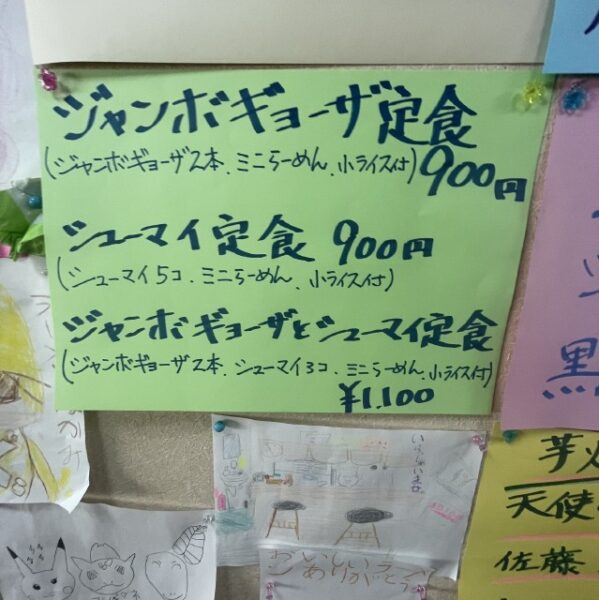 ジャンボギョーザ定食
(ジャンボギョーザ2本、ミニらーめん、小ライス付)900円
シューマイ定食 900円
(シューマイ5コ、ミニらーめん、小ライス付)
ジャンボギョーザとシューマイ定食
(ジャンボギョーザ2本、シューマイ3コ、ミニらーめん、小ライス付)
¥1,100
黒
芋
天使
佐藤
おいしいラ
ありがとう